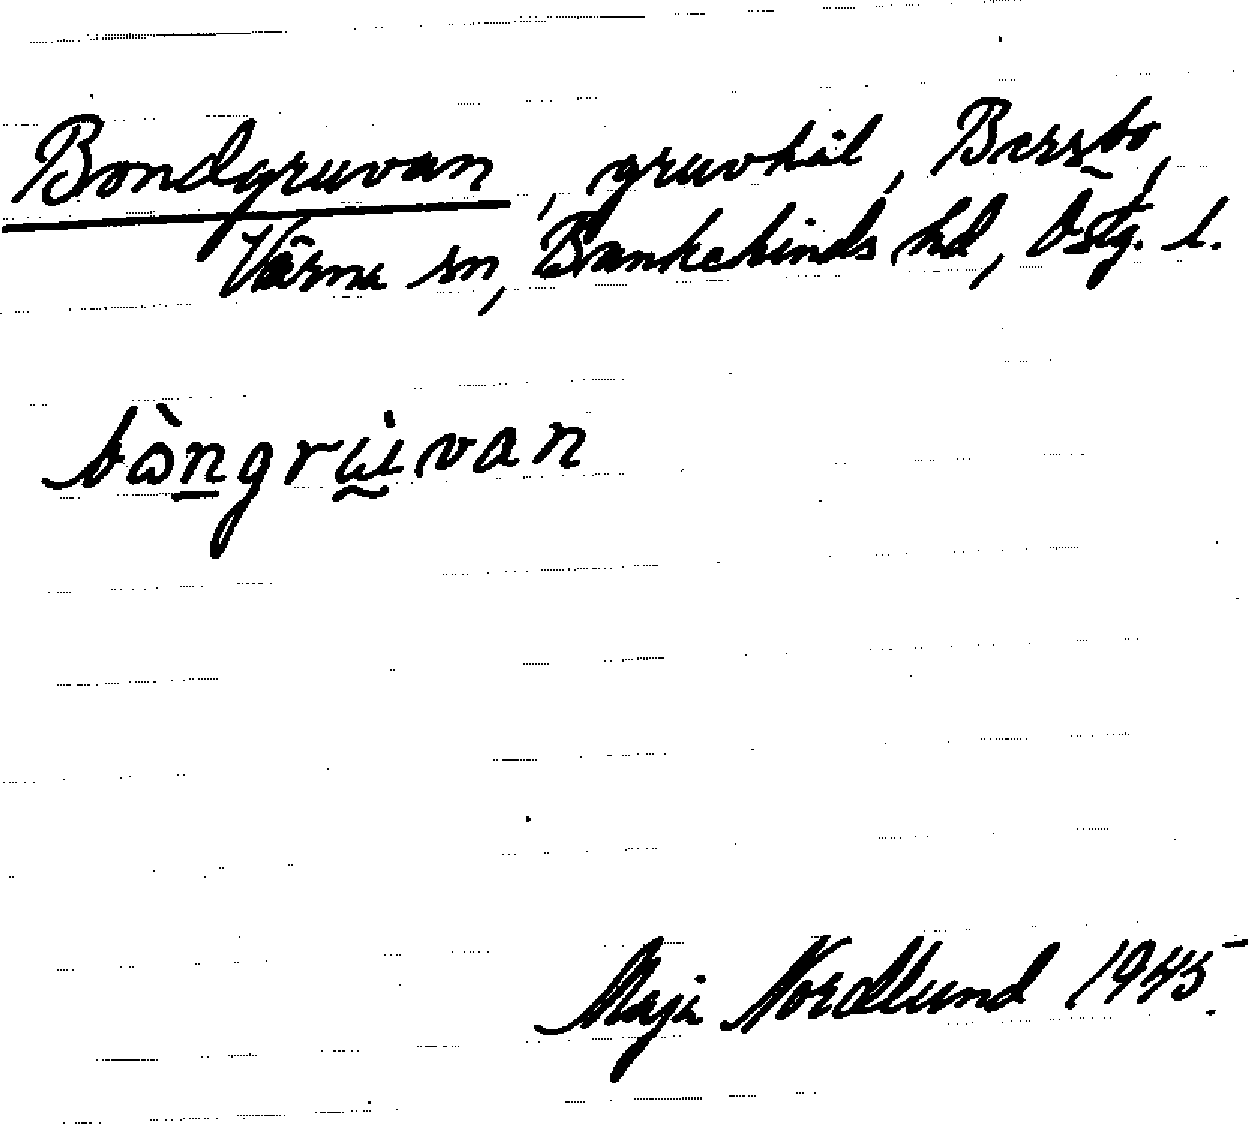 Bondgruvan, gruvhål, Bersbo,
Värna sn, Bankekinds hd, Östg. l.
bòngrùvan
Maja Nordlund 1945.